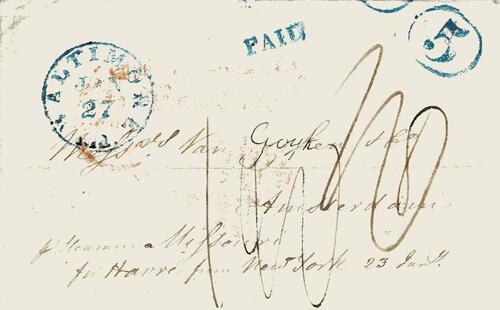 PAID
5
BALTIMORE
JAN
27
Md.
Messrs Van Goyken & Co
Amsterdam
pr Steamer Missouri
for Havre from New York 23 Jany.